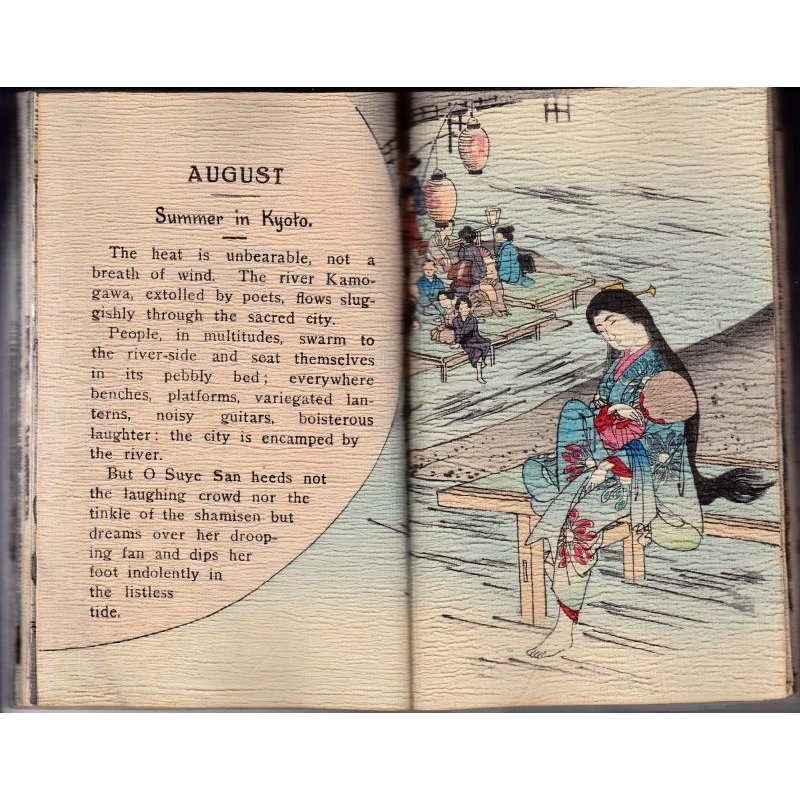 AUGUST
Summer in Kyoto.
The heat is unbearable, not a
breath of wind. The river Kamo-
gawa, extolled by poets, flows slug-
gishly through the sacred city.
People, in multitudes, swarm to
the river-side and seat themselves
in its pebbly bed; everywhere
benches, platforms, variegated lan-
terns, noisy guitars, boisterous
laughter: the city is encamped by
the river.
But O Suye San heeds not
the laughing crowd nor the
tinkle of the shamisen but
dreams over her droop-
ing fan and dips her
foot indolently in
the listless
tide.